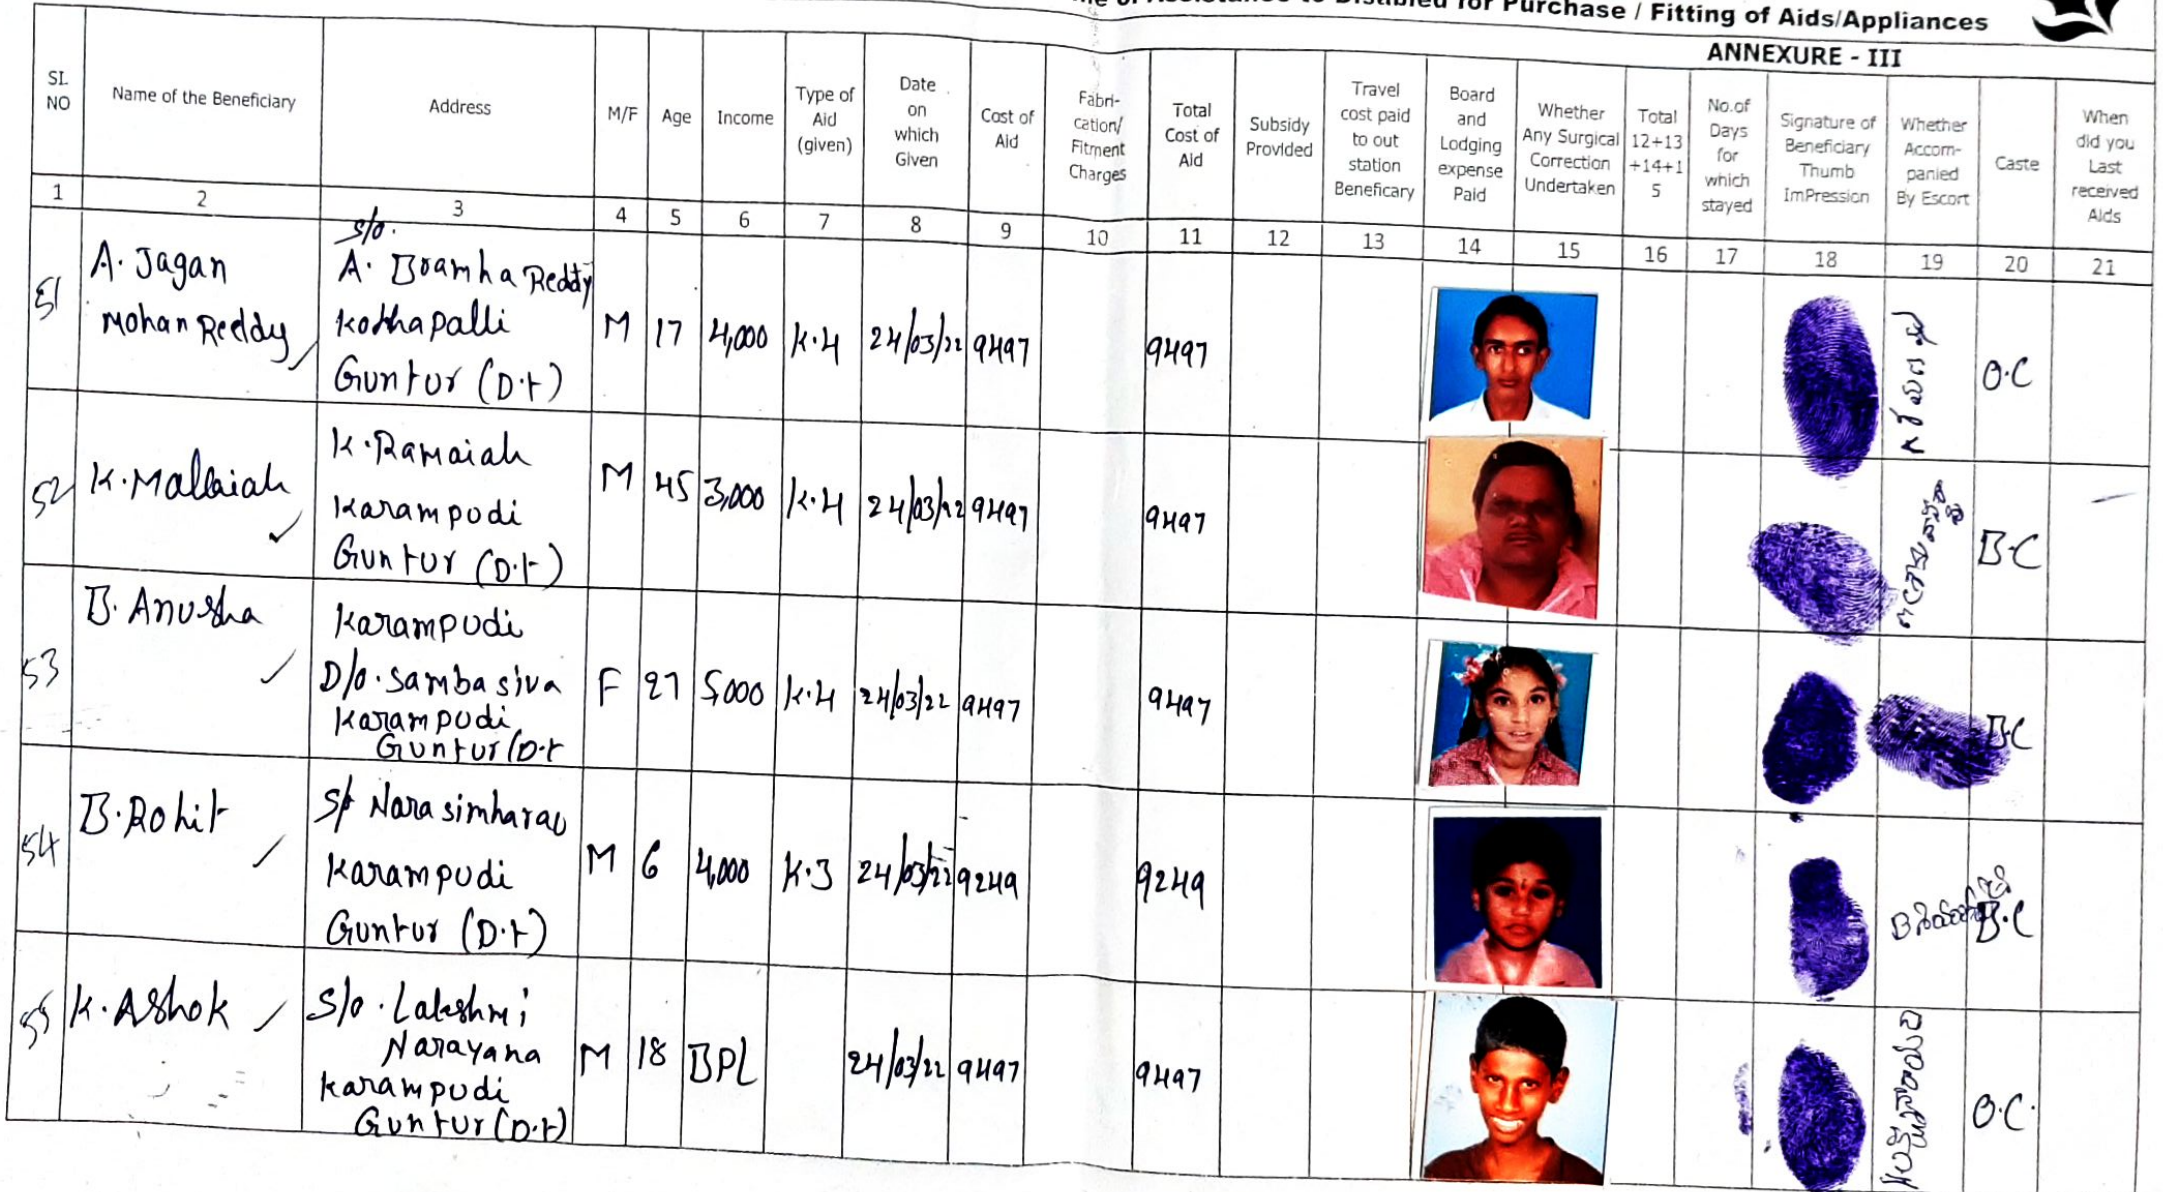 of Assistance to Disabled for Purchase / Fitting of Aids/Appliances
ANNEXURE - III
SL NO
Name of the Beneficiary
Address
M/F
Age
Income
Type of Aid (given)
Date on which Given
Cost of Aid
Fabri-cation/ Fitment Charges
Total Cost of Aid
Subsidy Provided
Travel cost paid to out station Beneficary
Board and Lodging expense Paid
Whether Any Surgical Correction Undertaken
Total 12+13+14+15
No.of Days for which stayed
Signature of Beneficiary Thumb ImPression
Whether Accom-panied By Escort
Caste
When did you Last received Aids
1 2 3 4 5 6 7 8 9 10 11 12 13 14 15 16 17 18 19 20 21
51 A. Jagan Mohan Reddy S/o. A. Bramha Reddy Kothapalli Guntur (D.t) M 17 4,000 K.4 24/03/22 9497 9497 O.C
52 K. Mallaiah K. Ramaiah Karampudi Guntur (D.t) M 45 3,000 K.4 24/03/22 9497 9497 B.C
53 B. Anusha Karampudi D/o. Sambasiva Karampudi Guntur (D.t F 27 5,000 K.4 24/03/22 9497 9497 B.C
54 B. Rohit S/o Narasimharao Karampudi Guntur (D.t) M 6 4,000 K.3 24/03/22 9249 9249 B.C
55 K. Ashok S/o. Lakshmi Narayana Karampudi Guntur (D.t) M 18 BPL 24/03/22 9497 9497 O.C.